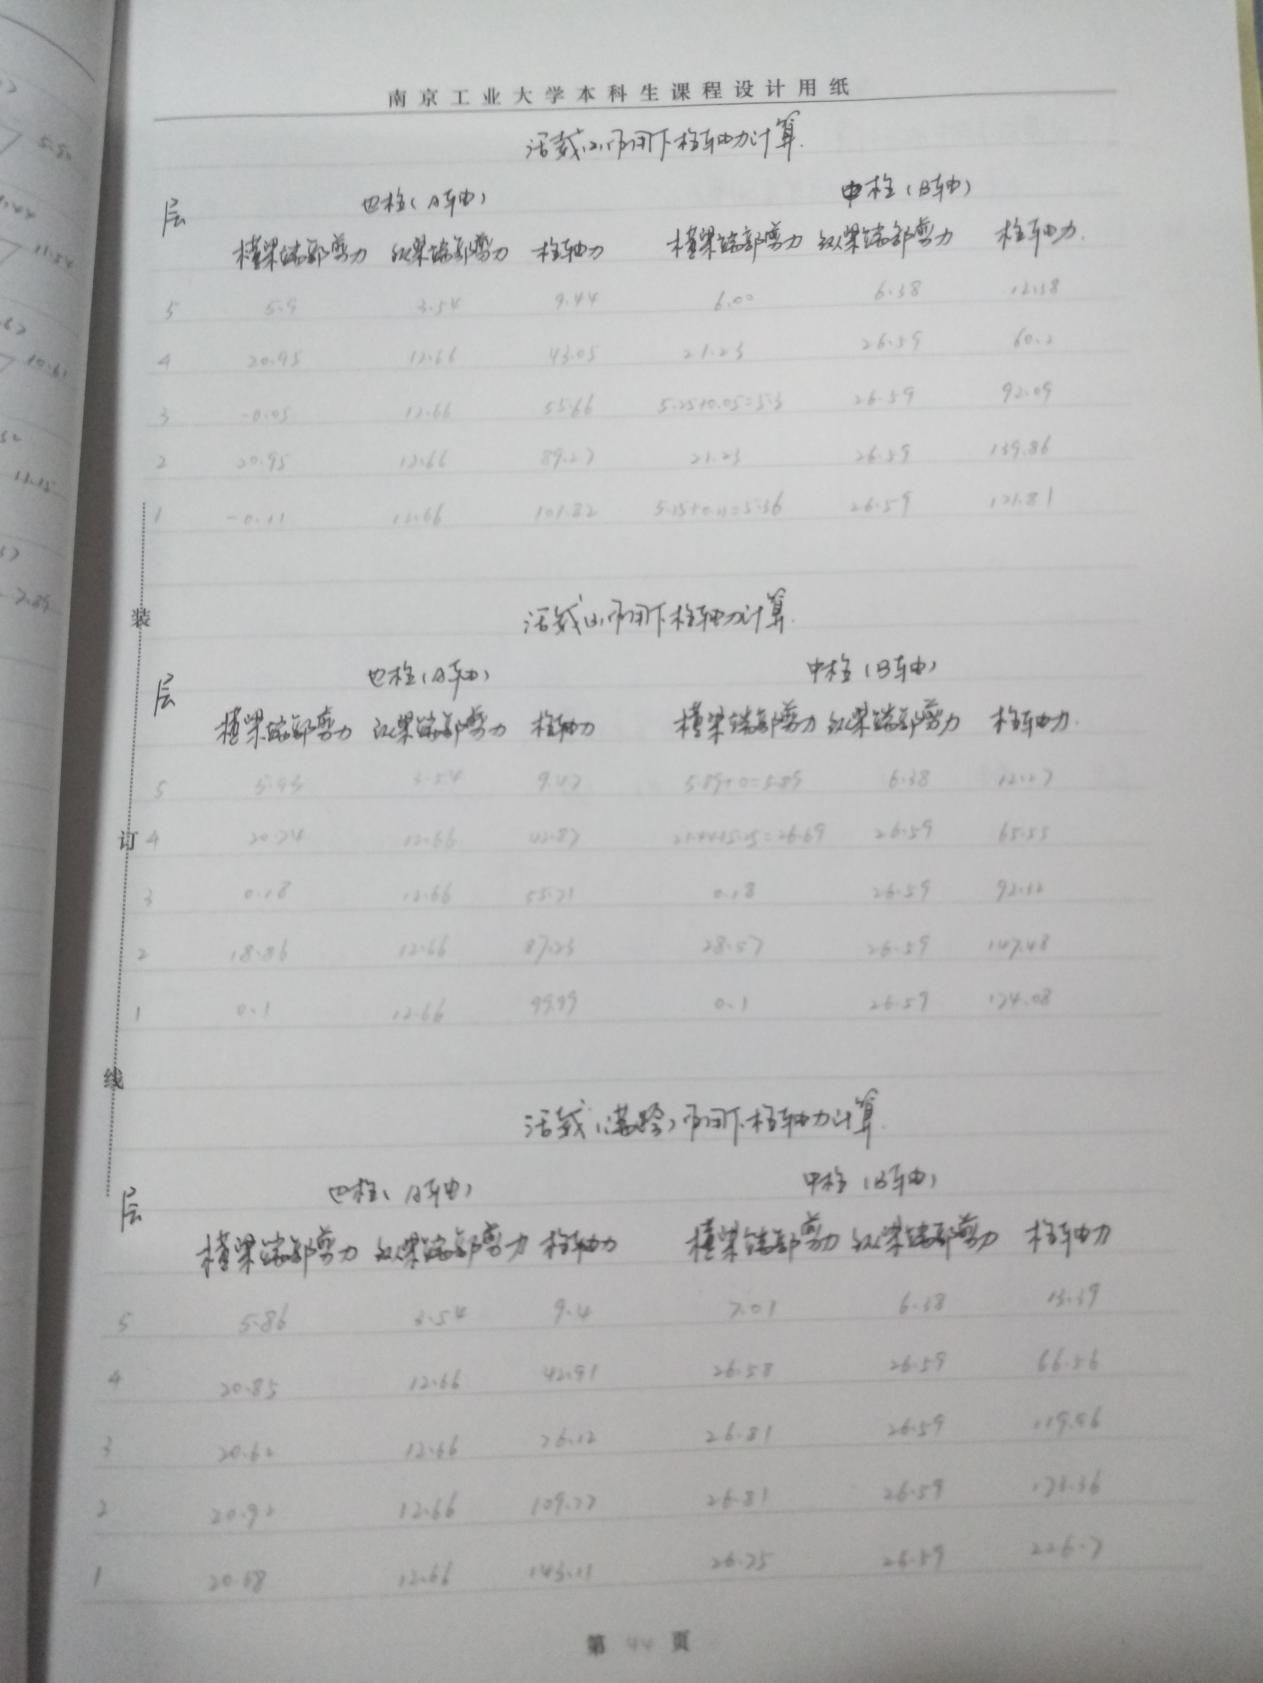 南京工业大学本科生课程设计用纸
活载(2)布置下柱轴力计算.
层 边柱(A轴) 中柱(B轴)
横梁端部剪力 纵梁端部剪力 柱轴力 横梁端部剪力 纵梁端部剪力 柱轴力.
5 5.9 3.54 9.44 6.00 6.38 12.38
4 20.95 12.66 43.05 21.23 26.59 60.2
3 -0.05 12.66 55.66 5.25+0.05=5.3 26.59 92.09
2 20.95 12.66 89.27 21.23 26.59 139.86
1 -0.11 12.66 101.82 5.25+0.11=5.36 26.59 171.81
装
活载(3)布置下柱轴力计算.
层 边柱(A轴) 中柱(B轴)
横梁端部剪力 纵梁端部剪力 柱轴力 横梁端部剪力 纵梁端部剪力 柱轴力.
5 5.93 3.54 9.47 5.89+0=5.89 6.38 12.27
订
4 20.74 12.66 42.87 21.44+5.25=26.69 26.59 65.55
3 0.18 12.66 55.71 0.18 26.59 92.32
2 18.86 12.66 87.23 28.57 26.59 147.48
1 0.1 12.66 99.99 0.1 26.59 174.08
线
活载(满跨)布置下柱轴力计算.
层 边柱(A轴) 中柱(B轴)
横梁端部剪力 纵梁端部剪力 柱轴力 横梁端部剪力 纵梁端部剪力 柱轴力
5 5.86 3.54 9.4 7.01 6.38 13.39
4 20.85 12.66 42.91 26.58 26.59 66.56
3 20.62 12.66 76.12 26.81 26.59 119.96
2 20.92 12.66 109.77 26.81 26.59 173.36
1 20.68 12.66 143.11 26.75 26.59 226.7
第 44 页